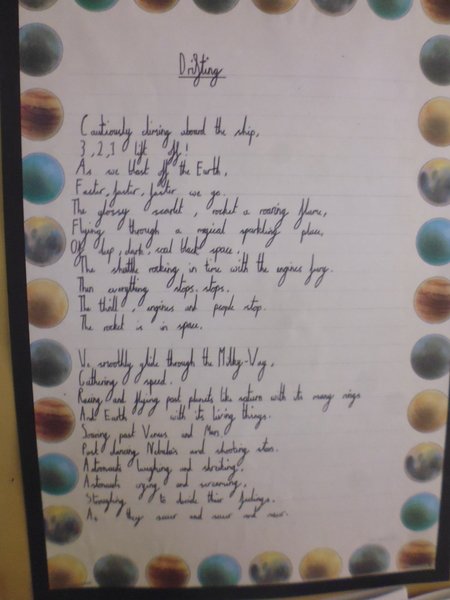 Drifting
Cautiously climing aboard the ship,
3, 2, 1 lift off!
As we blast off the Earth,
Faster, faster, faster we go.
The glossy scarlet, rocket a roaring flame,
Flying through a magical sparkling place,
Of deep, dark, coal black space.
The shuttle rocking in time with the engines fury.
Then everything stops. stops.
The thrill, engines and people stop.
The rocket is in space.
We smoothly glide through the Milky-Way,
Gathering speed.
Racing and flying past planets like saturn with its many rings
And Earth with its living things.
Soaring past Venus and Mars
Past dancing Nebula's and shooting stars.
Astronauts laughing and shrieking,
Astronauts crying and screaming,
Struggling to decide their feelings.
As they soar and soar and soar.